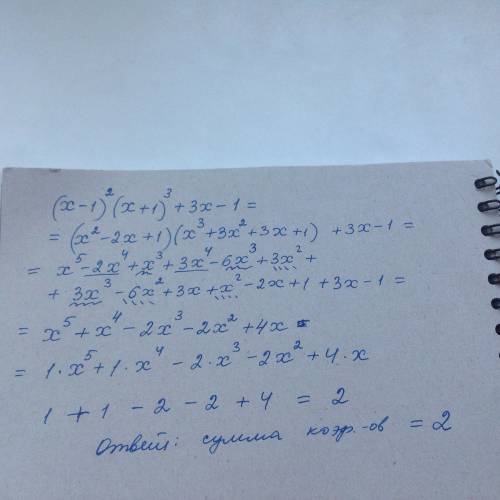 (x-1)²(x+1)³+3x-1=
=(x²-2x+1)(x³+3x²+3x+1)+3x-1=
= x⁵-2x⁴+x³+3x⁴-6x³+3x²+
+ 3x³-6x²+3x+x²-2x+1+3x-1=
= x⁵+x⁴-2x³-2x²+4x=
= 1·x⁵+1·x⁴-2·x³-2x²+4·x
1+1-2-2+4=2
Ответ: сумма коэф.-ов = 2